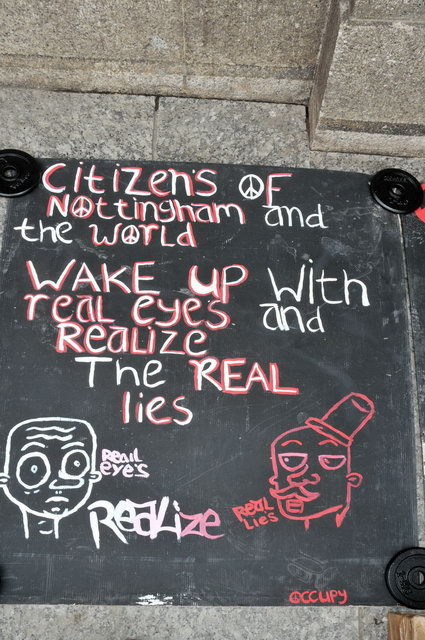 Citizen's OF
Nottingham and
the world
WAKE up With
real eye's and
Realize
The REAL
lies
Reail
eye's
Realize
REAL
LIES
OCCUPY